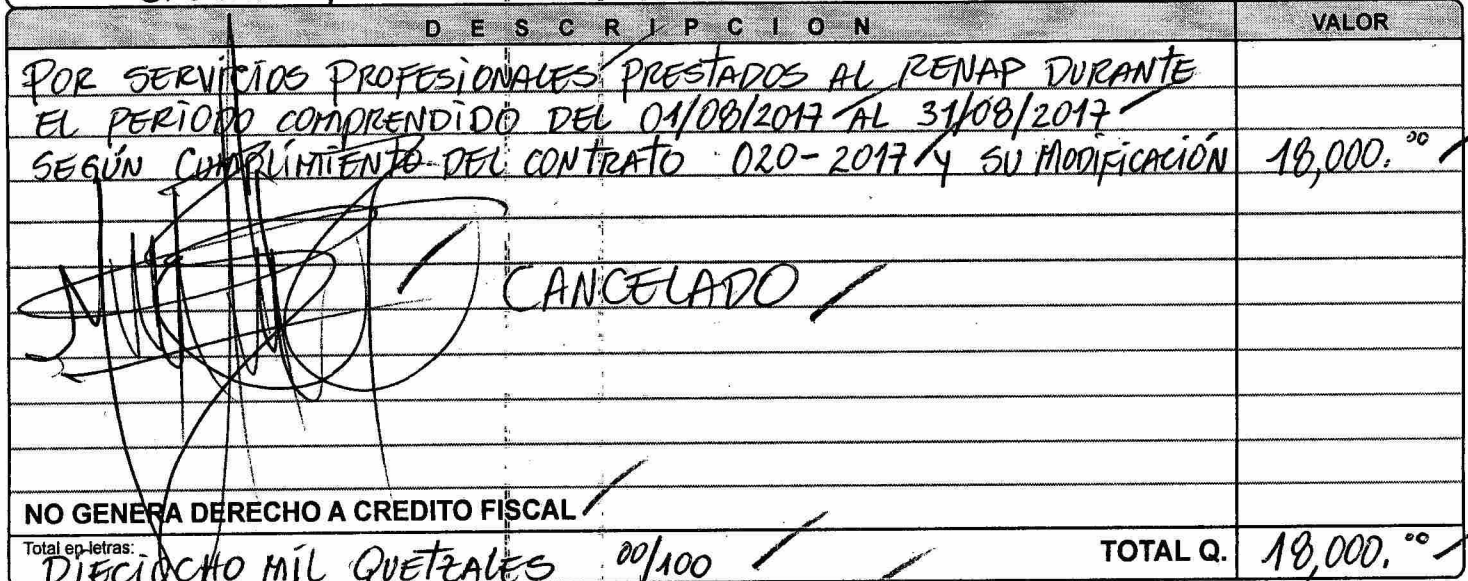 DESCRIPCION VALOR
POR SERVICIOS PROFESIONALES PRESTADOS AL RENAP DURANTE
EL PERIODO COMPRENDIDO DEL 01/08/2017 AL 31/08/2017
SEGÚN CUMPLIMIENTO DEL CONTRATO 020-2017 Y SU MODIFICACIÓN 18,000.00
CANCELADO
NO GENERA DERECHO A CREDITO FISCAL
Total en letras: DIECIOCHO MIL QUETZALES 00/100 TOTAL Q. 18,000.00